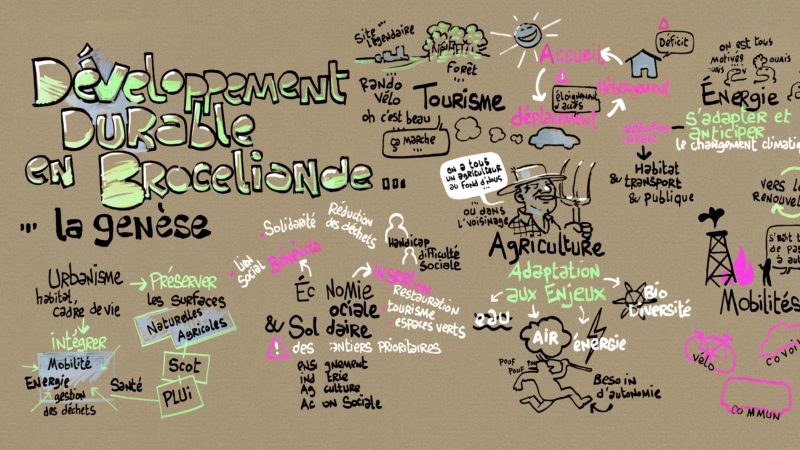 Développement
Durable
en Broceliande ...
... la genèse
Site
légendaire
Forêt
Rando
Vélo
oh c'est beau
ça marche
Tourisme
Accueil
Hébergement
Déficit
éloignement
déplacement
on est tous
motivés
ouais
Énergie
s'adapter et
anticiper
le changement climatiq
Habitat
& transport
& publique
vers l
Renouvel
on a tous
un agriculteur
au fond d'nous
... ou dans
l'voisinage
Agriculture
Adaptation
aux Enjeux
eau
AIR
énergie
Bio
Diversité
Pouf
Pouf
Pouf
Besoin
d'autonomie
de pas
à autr
Mobilités
Vélo
covoi
commun
Urbanisme
habitat,
cadre de vie
intégrer
Mobilité
Energie
gestion
des déchets
Santé
Préserver
les surfaces
Naturelles
Agricoles
Scot
PLUi
Lien
Social
Solidarité
Réduction
des déchets
Bénévola
Handicap
difficulté
Sociale
Insertion
Restauration
tourisme
espaces verts
Éc nomie
ociale
& Sol daire
des antiers prioritaires
ensi gnement
ind trie
Ag culture
Ac on Sociale